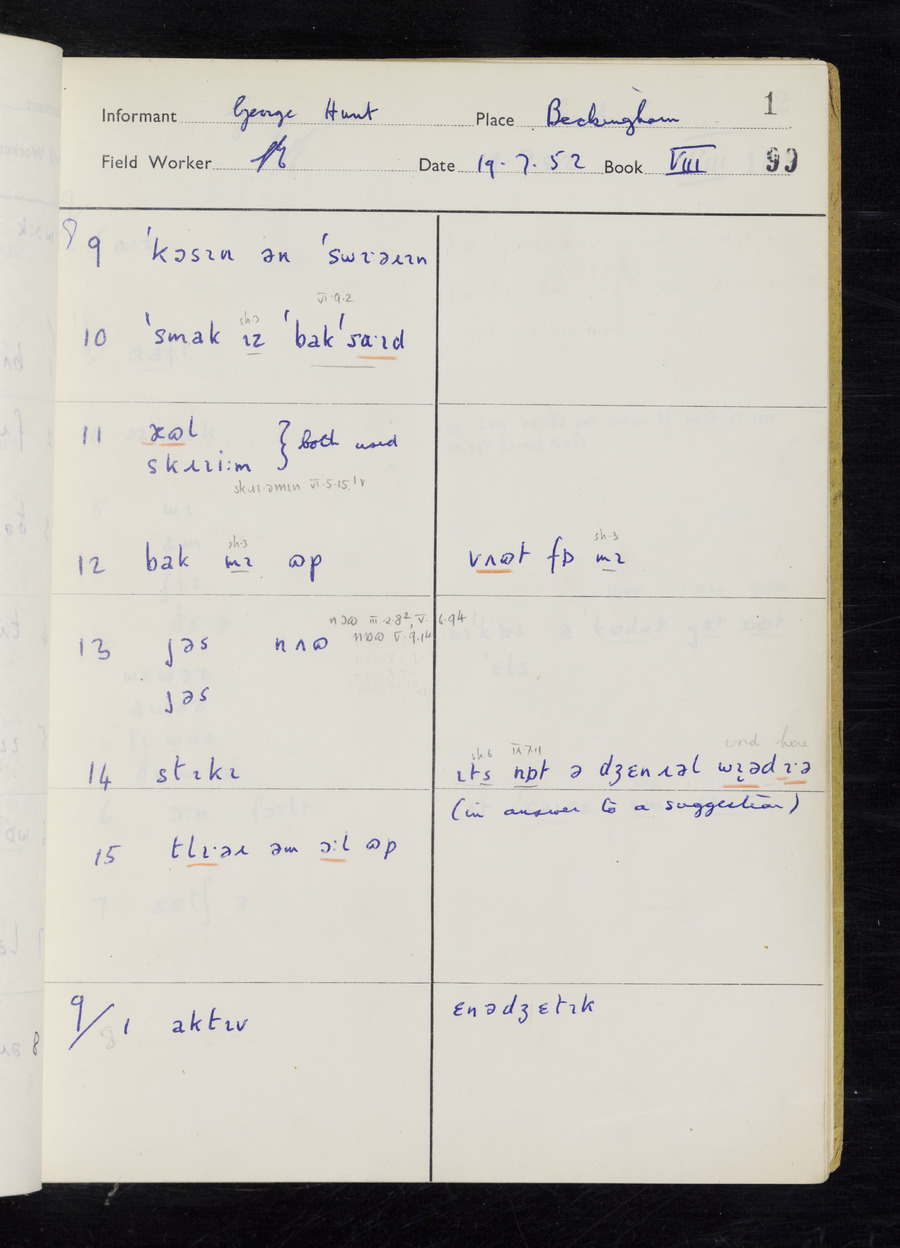 1
Informant George Hunt Place Beckingham
Field Worker Date 19.7.52 Book VIII 99
8
9 ˈkɔsɪn ən ˈswɪəɹɪn
VI.9.2
sh.3
10 ˈsmak ɪz ˈbakˈsaˑɪd
11 ɷl } both used
skɹɪiːm
skɹɪˑəmɪn VI.5.15
sh.3 sh.3
12 bak mɪ ɷp vʌɷt fɒ mɪ
nɔɷ III.2.8², V.6.94
nɒɷ V.9.14
13 jəs nʌɷ
jəs
word here
sh.6 IX.7.11
14 stɪkɪ ɪts nɒt ə dʒɛnɹəl wɪədɪˑə
(in answer to a suggestion)
15 tlɪˑəɹ əm ɔːl ɷp
9/1 aktɪv ɛnədʒɛtɪk
8